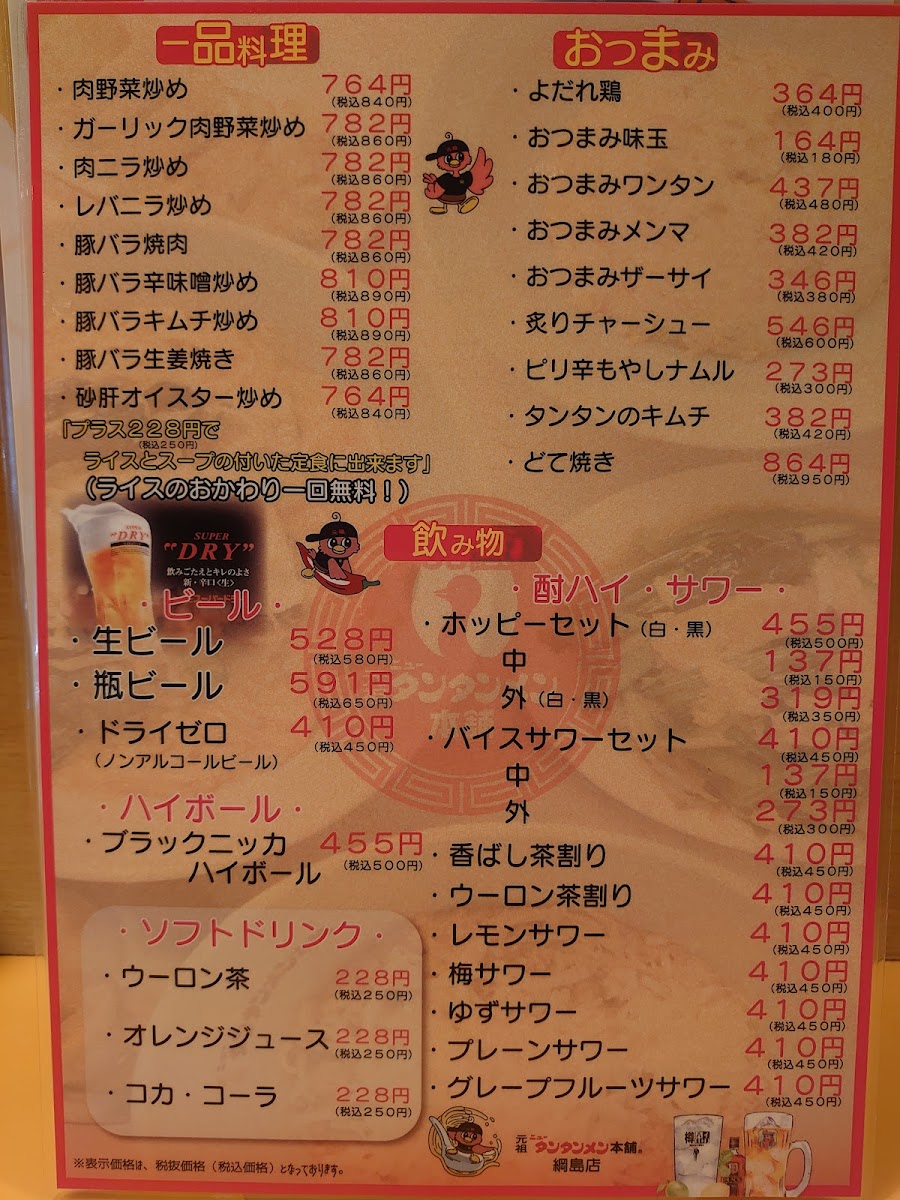 一品料理
・肉野菜炒め 764円
(税込840円)
・ガーリック肉野菜炒め 782円
(税込860円)
・肉ニラ炒め 782円
(税込860円)
・レバニラ炒め 782円
(税込860円)
・豚バラ焼肉 782円
(税込860円)
・豚バラ辛味噌炒め 810円
(税込890円)
・豚バラキムチ炒め 810円
(税込890円)
・豚バラ生姜焼き 782円
(税込860円)
・砂肝オイスター炒め 764円
(税込840円)
「プラス228円で
(税込250円)
ライスとスープの付いた定食に出来ます」
(ライスのおかわり一回無料！)
おつまみ
・よだれ鶏 364円
(税込400円)
・おつまみ味玉 164円
(税込180円)
・おつまみワンタン 437円
(税込480円)
・おつまみメンマ 382円
(税込420円)
・おつまみザーサイ 346円
(税込380円)
・炙りチャーシュー 546円
(税込600円)
・ピリ辛もやしナムル 273円
(税込300円)
・タンタンのキムチ 382円
(税込420円)
・どて焼き 864円
(税込950円)
飲み物
SUPER
"DRY"
SUPER
"DRY"
飲みごたえとキレのよさ
新・辛口〈生〉
・ビール・
・生ビール 528円
(税込580円)
・瓶ビール 591円
(税込650円)
・ドライゼロ 410円
(ノンアルコールビール) (税込450円)
・ハイボール・
・ブラックニッカ 455円
ハイボール (税込500円)
・ソフトドリンク・
・ウーロン茶 228円
(税込250円)
・オレンジジュース 228円
(税込250円)
・コカ・コーラ 228円
(税込250円)
・酎ハイ・サワー・
・ホッピーセット (白・黒) 455円
(税込500円)
中 137円
(税込150円)
外 (白・黒) 319円
(税込350円)
・バイスサワーセット 410円
(税込450円)
中 137円
(税込150円)
外 273円
(税込300円)
・香ばし茶割り 410円
(税込450円)
・ウーロン茶割り 410円
(税込450円)
・レモンサワー 410円
(税込450円)
・梅サワー 410円
(税込450円)
・ゆずサワー 410円
(税込450円)
・プレーンサワー 410円
(税込450円)
・グレープフルーツサワー 410円
(税込450円)
ニュー
タンタンメン
本舗
元祖 ニュータンタンメン本舗®
綱島店
※表示価格は、税抜価格（税込価格）となっております。